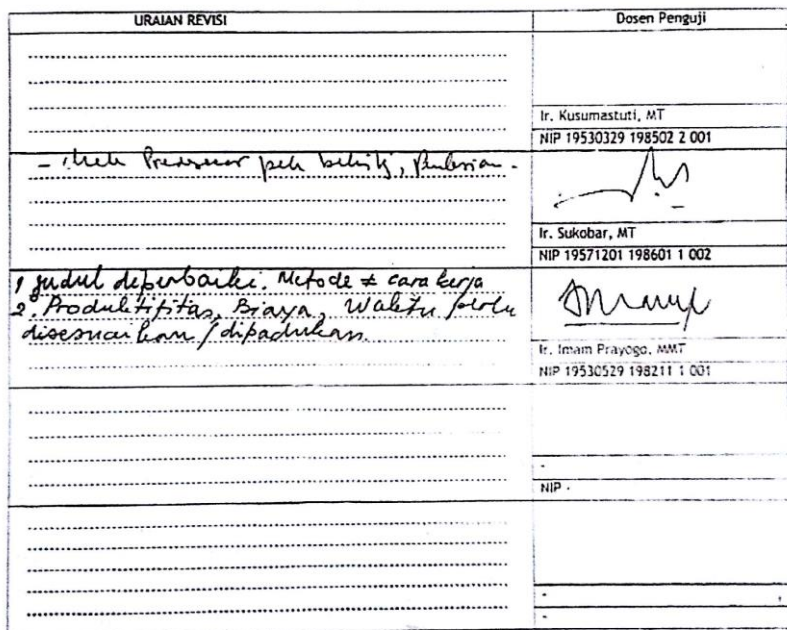 URAIAN REVISI
Dosen Penguji
Ir. Kusumastuti, MT
NIP 19530329 198502 2 001
- pek
Ir. Sukobar, MT
NIP 19571201 198601 1 002
1. Judul diperbaiki. Metode ≠ cara kerja
2. Produktifitas, Biaya, Waktu perlu
disesuaikan / dipadukan.
Ir. Imam Prayogo, MMT
NIP 19530529 198211 1 001
-
NIP -
-
-